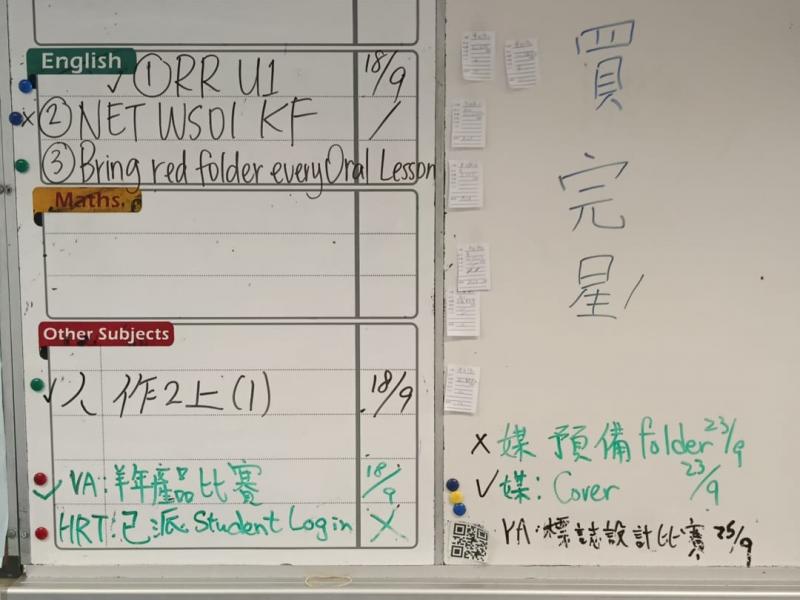 English
✓ ① RR U1 18/9
× ② NET WSD1 KF /
③ Bring red folder every Oral Lesson
Maths.
Other Subjects
✓ 人 作2上(1) 18/9
✓ VA: 羊年產品比賽 18/9
HRT: 已派 Student Login ×
買
完
星
× 媒 預備 folder 23/9
✓ 媒: Cover 23/9
VA: 標誌設計比賽 25/9